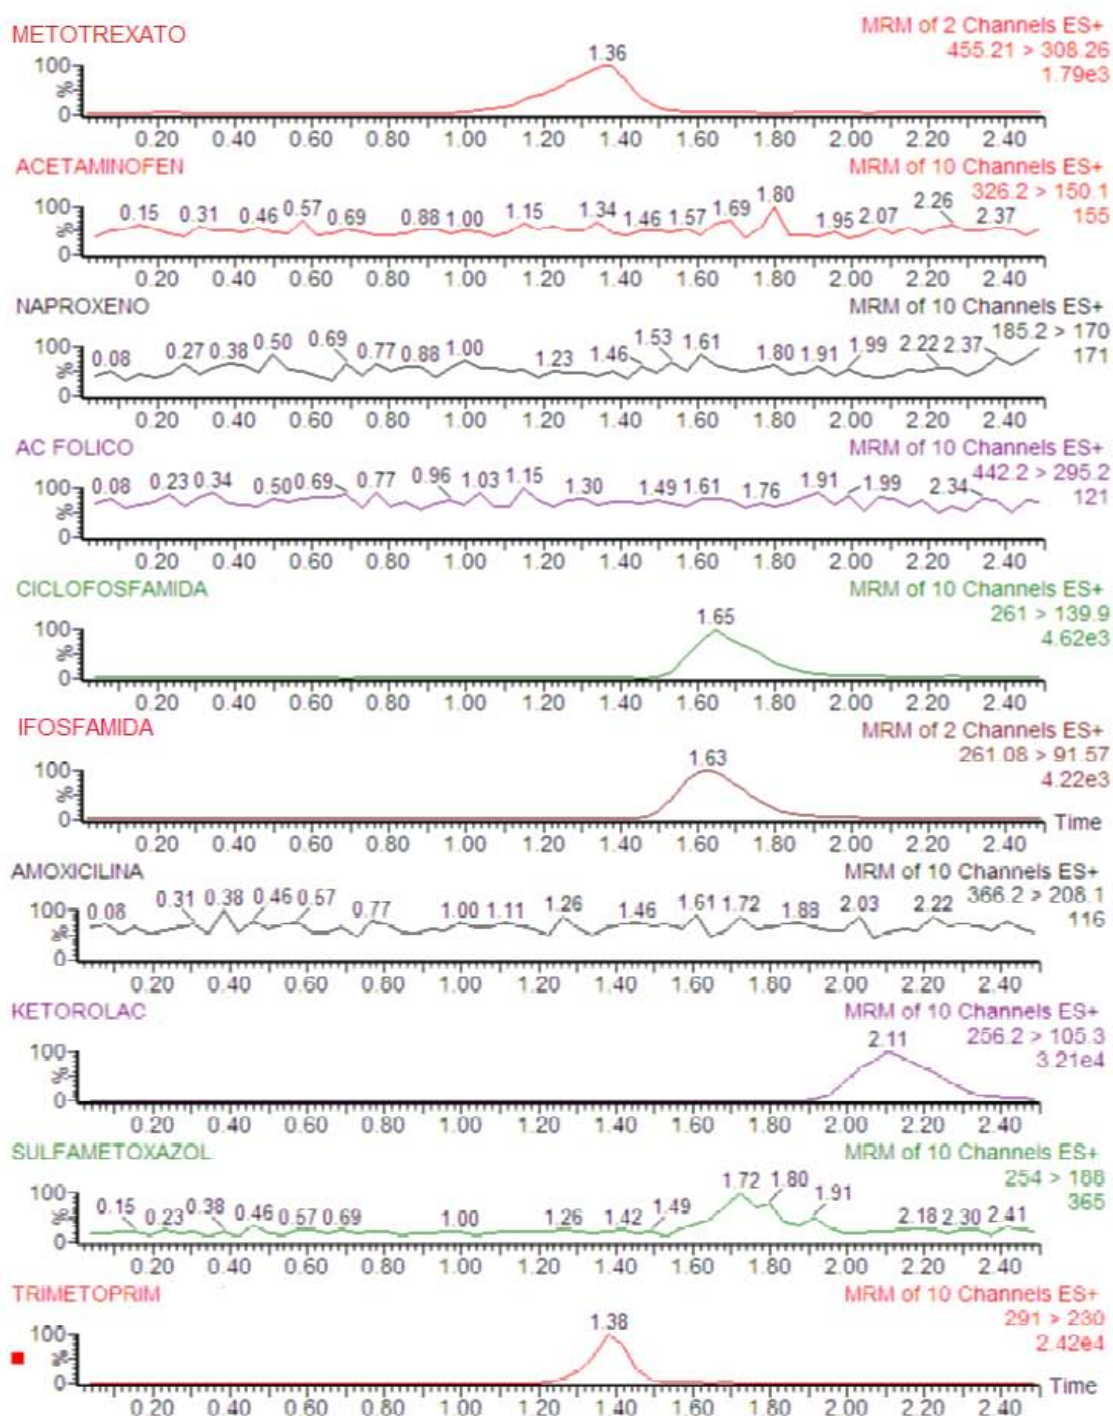 METOTREXATO
MRM of 2 Channels ES+
455.21 > 308.26
1.79e3
1.36
100
%
0
0.20 0.40 0.60 0.80 1.00 1.20 1.40 1.60 1.80 2.00 2.20 2.40
ACETAMINOFEN
MRM of 10 Channels ES+
326.2 > 150.1
155
100
%
0
0.15 0.31 0.46 0.57 0.69 0.88 1.00 1.15 1.34 1.46 1.57 1.69 1.80 1.95 2.07 2.26 2.37
0.20 0.40 0.60 0.80 1.00 1.20 1.40 1.60 1.80 2.00 2.20 2.40
NAPROXENO
MRM of 10 Channels ES+
185.2 > 170
171
100
%
0
0.08 0.27 0.38 0.50 0.69 0.77 0.88 1.00 1.23 1.46 1.53 1.61 1.80 1.91 1.99 2.22 2.37
0.20 0.40 0.60 0.80 1.00 1.20 1.40 1.60 1.80 2.00 2.20 2.40
AC FOLICO
MRM of 10 Channels ES+
442.2 > 295.2
121
100
%
0
0.08 0.23 0.34 0.50 0.69 0.77 0.96 1.03 1.15 1.30 1.49 1.61 1.76 1.91 1.99 2.34
0.20 0.40 0.60 0.80 1.00 1.20 1.40 1.60 1.80 2.00 2.20 2.40
CICLOFOSFAMIDA
MRM of 10 Channels ES+
261 > 139.9
4.62e3
1.65
100
%
0
0.20 0.40 0.60 0.80 1.00 1.20 1.40 1.60 1.80 2.00 2.20 2.40
IFOSFAMIDA
MRM of 2 Channels ES+
261.08 > 91.57
4.22e3
1.63
100
%
0
Time
0.20 0.40 0.60 0.80 1.00 1.20 1.40 1.60 1.80 2.00 2.20 2.40
AMOXICILINA
MRM of 10 Channels ES+
366.2 > 208.1
116
100
%
0
0.08 0.31 0.38 0.46 0.57 0.77 1.00 1.11 1.26 1.46 1.61 1.72 1.88 2.03 2.22
0.20 0.40 0.60 0.80 1.00 1.20 1.40 1.60 1.80 2.00 2.20 2.40
KETOROLAC
MRM of 10 Channels ES+
256.2 > 105.3
3.21e4
2.11
100
%
0
0.20 0.40 0.60 0.80 1.00 1.20 1.40 1.60 1.80 2.00 2.20 2.40
SULFAMETOXAZOL
MRM of 10 Channels ES+
254 > 188
365
100
%
0
0.15 0.23 0.38 0.46 0.57 0.69 1.00 1.26 1.42 1.49 1.72 1.80 1.91 2.18 2.30 2.41
0.20 0.40 0.60 0.80 1.00 1.20 1.40 1.60 1.80 2.00 2.20 2.40
TRIMETOPRIM
MRM of 10 Channels ES+
291 > 230
2.42e4
1.38
100
%
0
Time
0.20 0.40 0.60 0.80 1.00 1.20 1.40 1.60 1.80 2.00 2.20 2.40